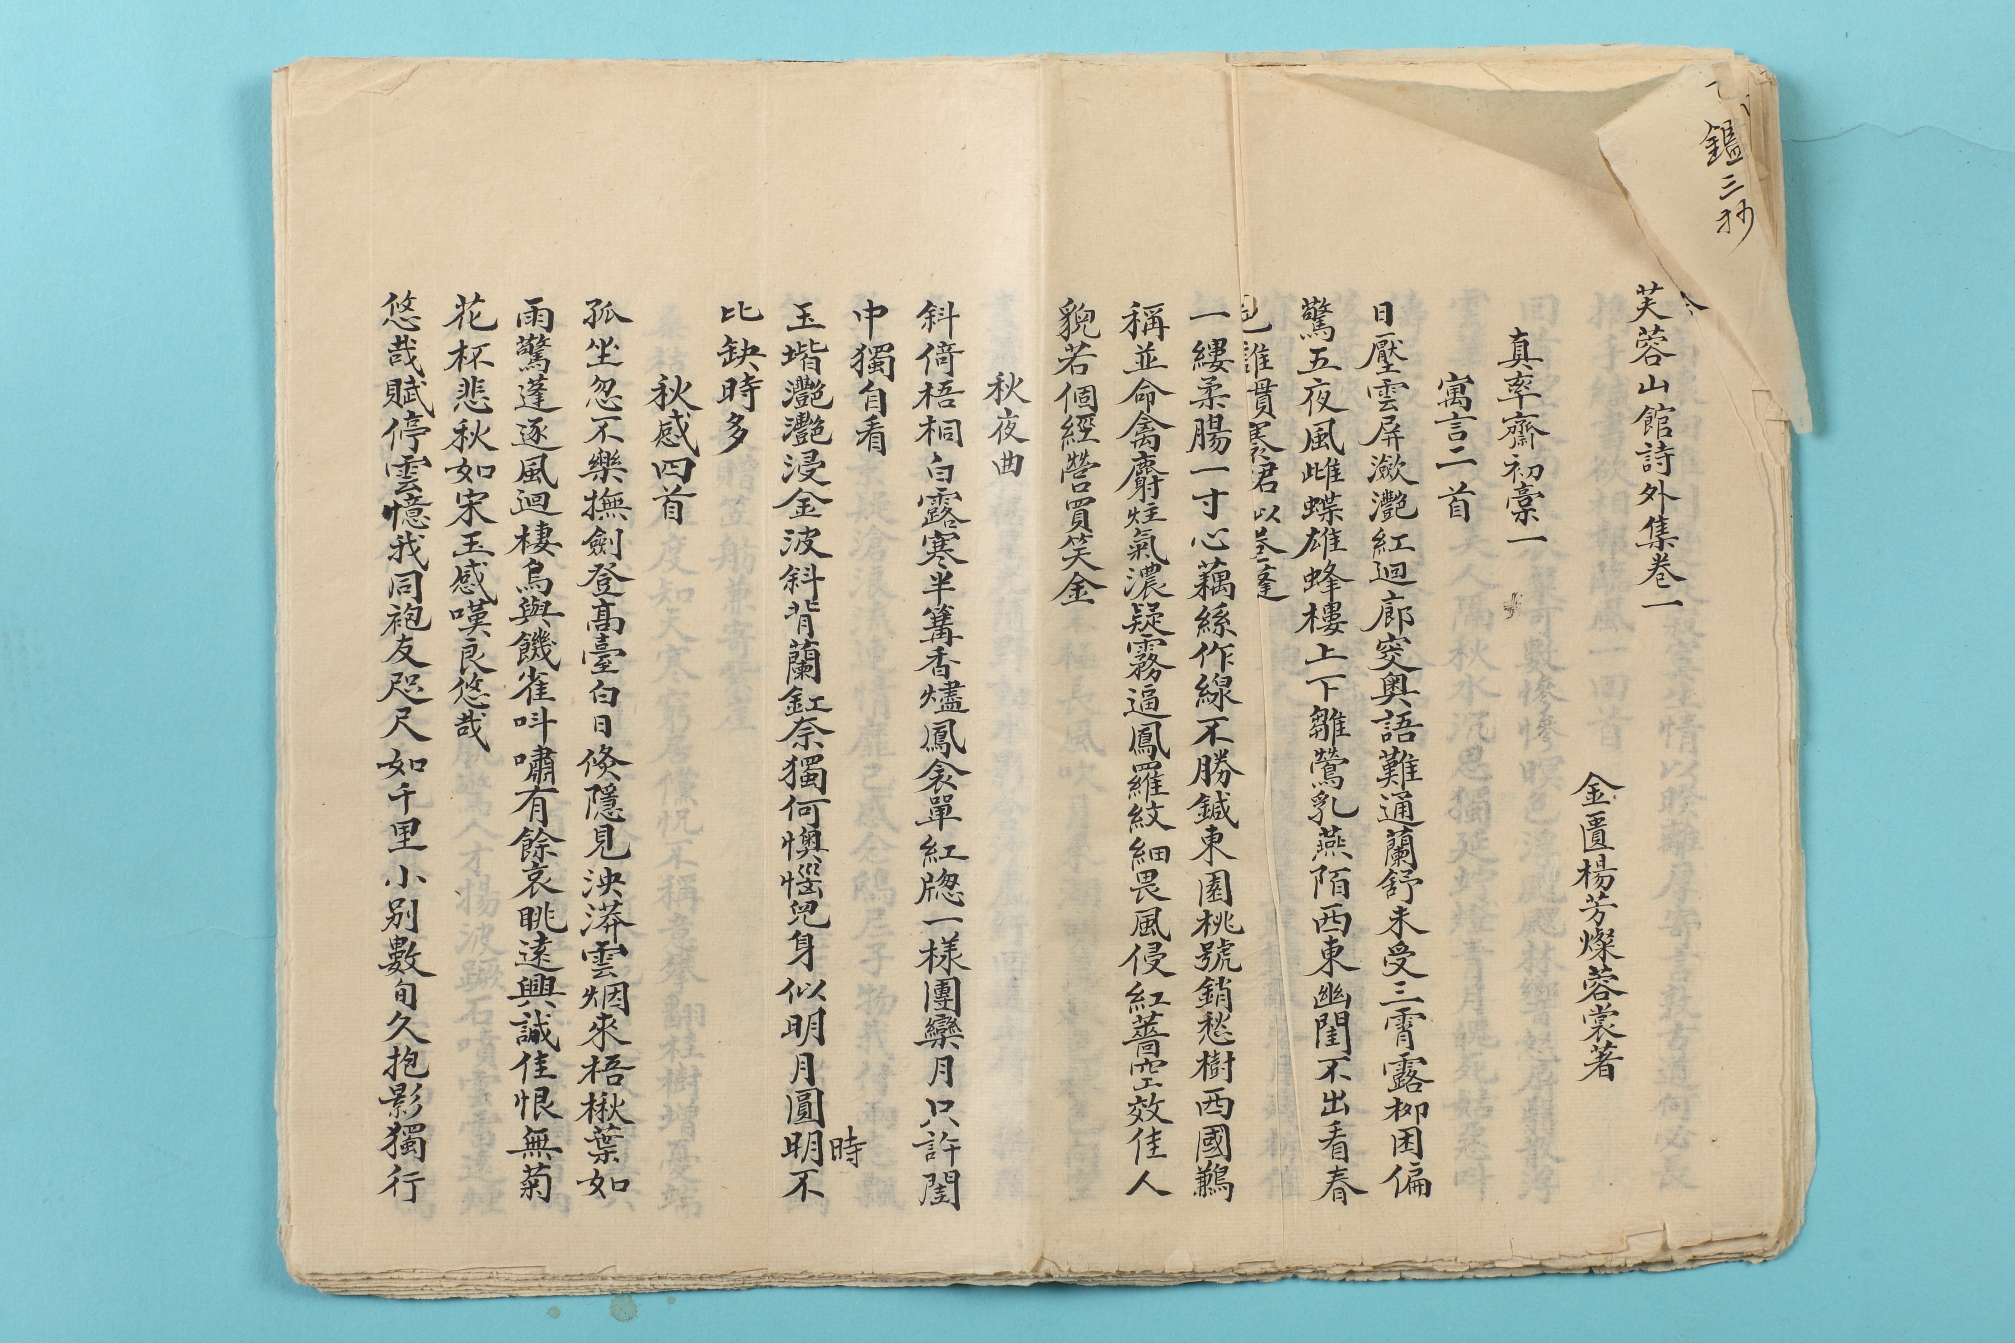 鑑三抄
芙蓉山館詩外集卷一
金匱楊芳燦蓉裳著
真率齋初稾一
寓言二首
日壓雲屏瀲灩紅迴廊窔奧語難通蘭舒未受三霄露栁困偏
驚五夜風雌蝶雄蜂樓上下雛鶯乳燕陌西東幽閨不出看春
色誰貫裏裙似卷蓬
一縷柔腸一寸心藕絲作線不勝鍼東園桃號銷愁樹西國鶼
稱並命禽麝炷氣濃疑霧逼鳳羅紋細畏風侵紅薔空效佳人
貌若個經營買笑金
秋夜曲
斜倚梧桐白露寒半篝香燼鳳衾單紅牕一樣團欒月只許閨
中獨自看
玉堦灧灧浸金波斜背蘭釭奈獨何懊惱兒身似明月圓時明不
比缺時多
秋感四首
孤坐忽不樂撫劍登高臺白日倏隱見泱漭雲烟來梧楸葉如
雨驚蓬逐風迴棲烏與饑雀呌嘯有餘哀眺遠興誠佳恨無菊
花杯悲秋如宋玉感嘆良悠哉
悠哉賦停雲憶我同袍友咫尺如千里小別數旬久抱影獨行